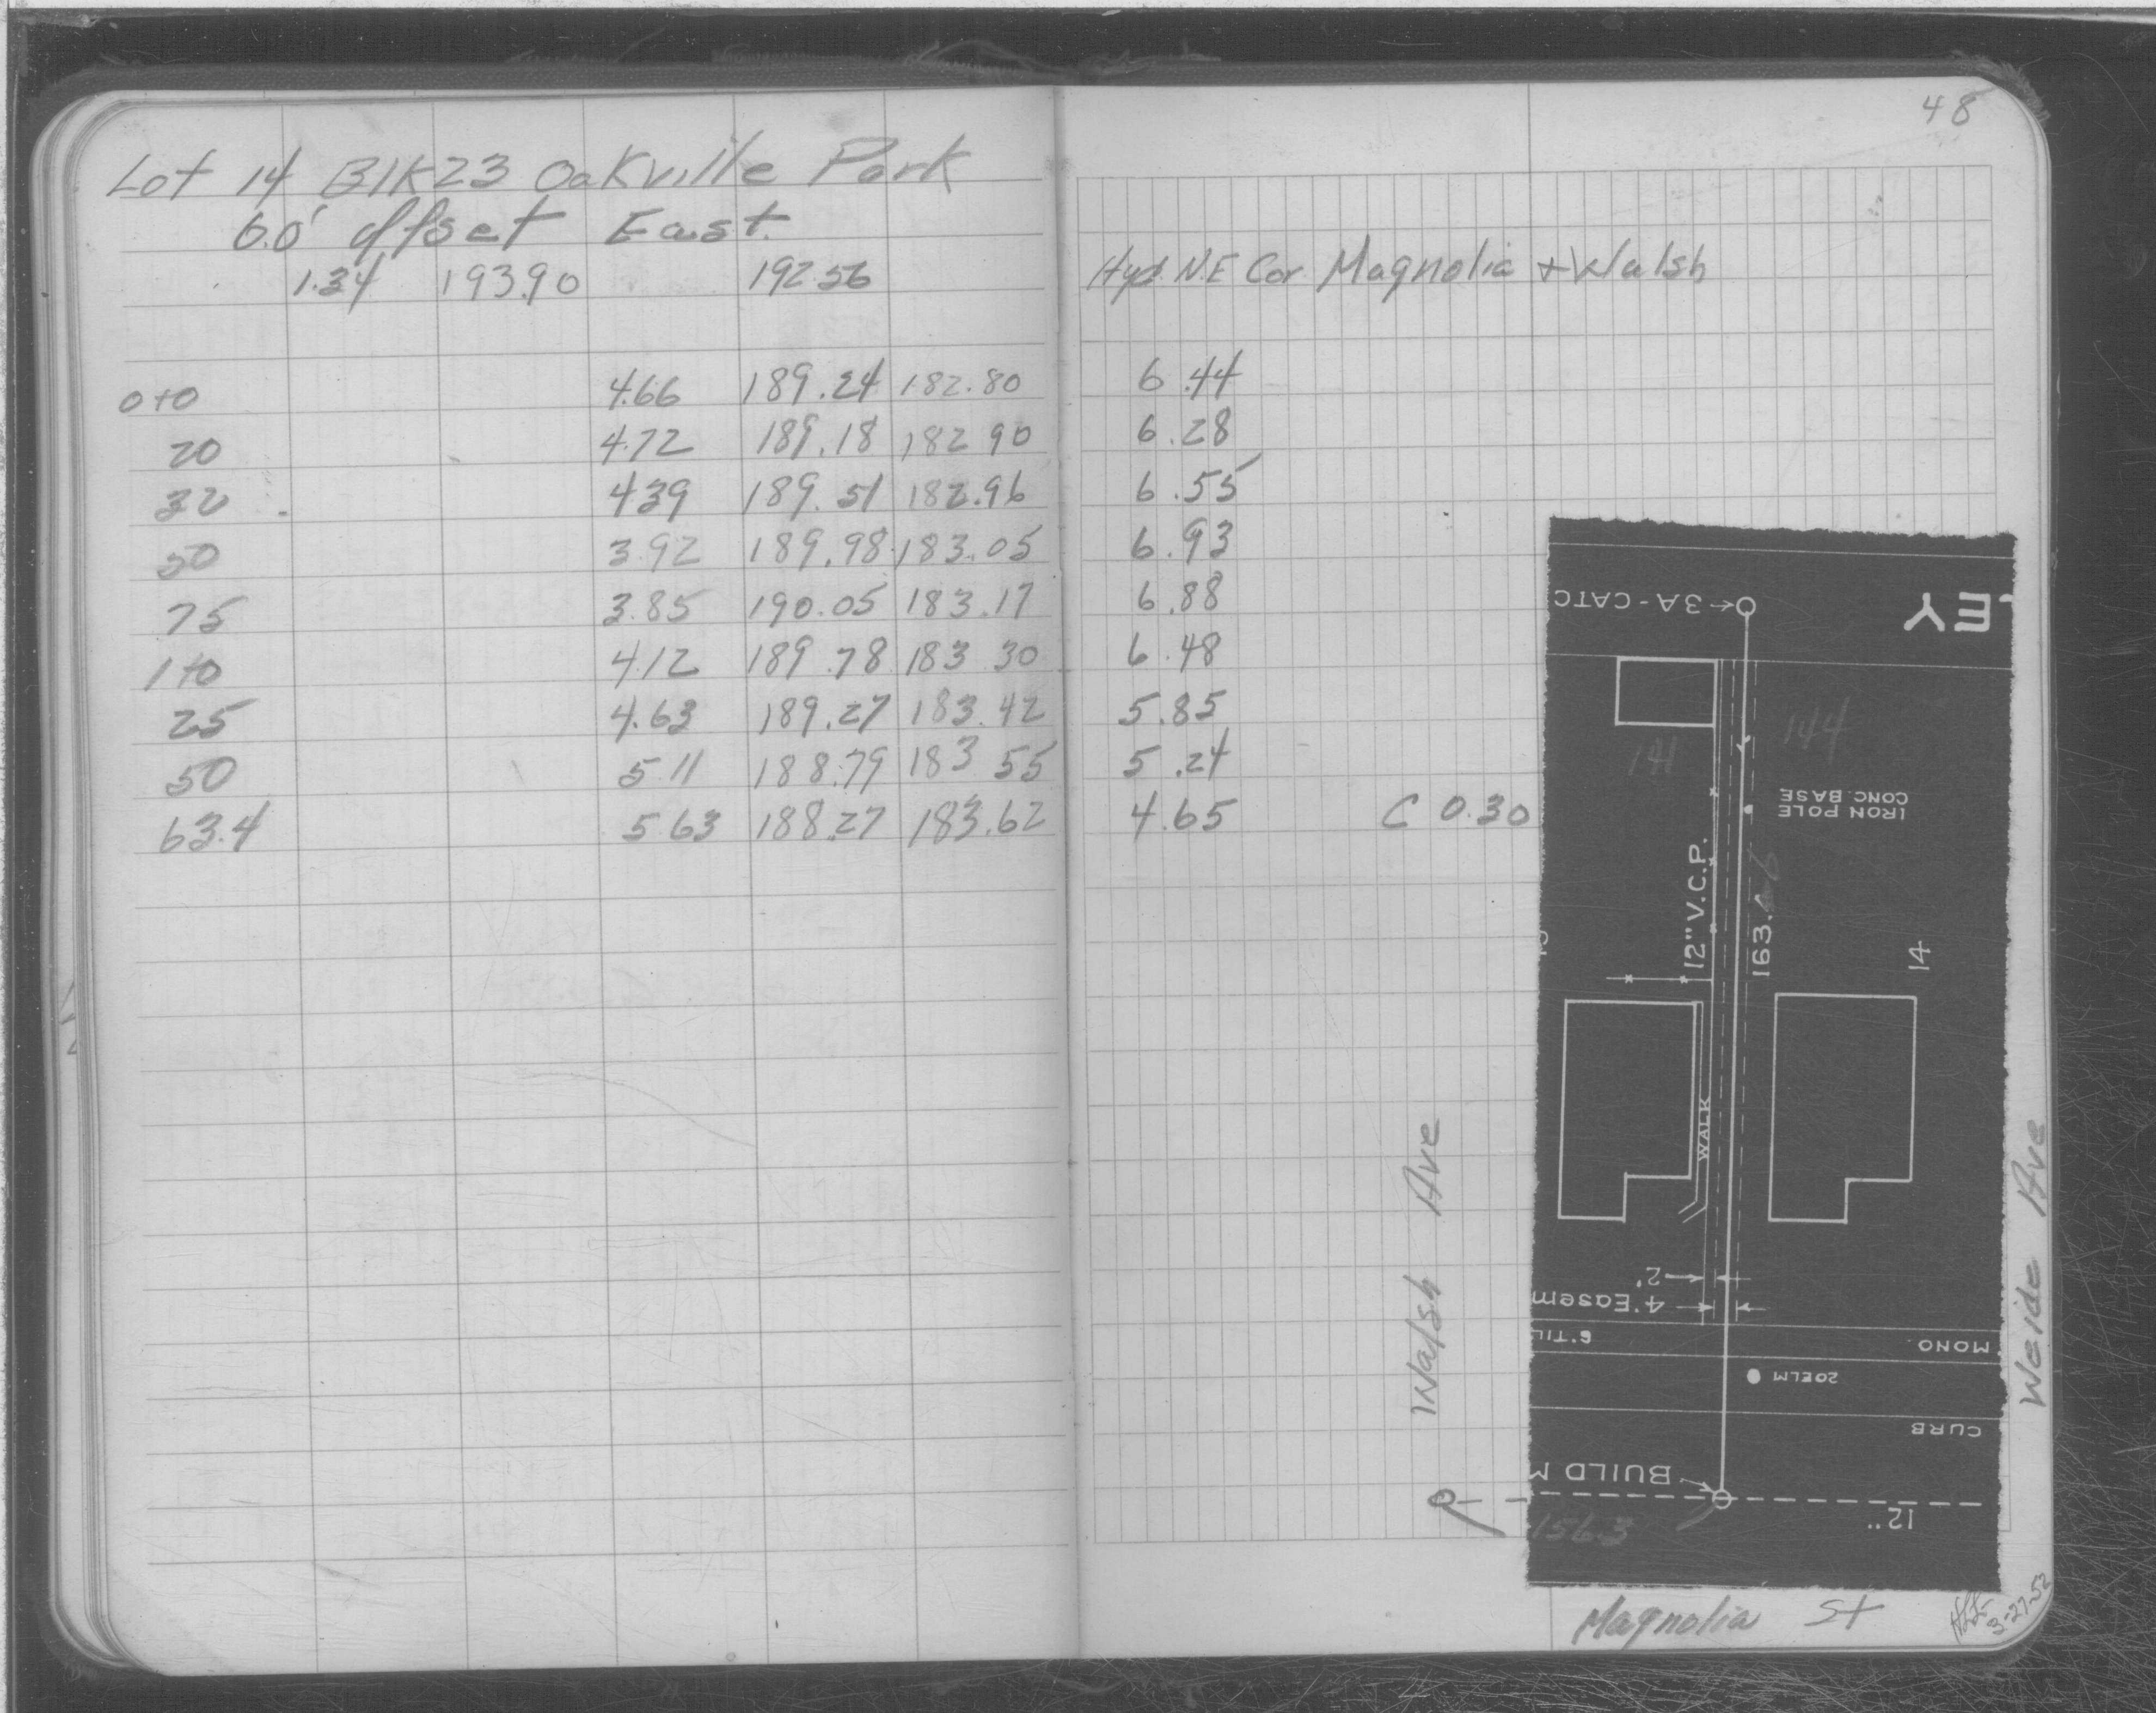 48
Lot 14 Blk 23 Oakville Park
6.0' offset East.
1.34 193.90 192.56 Hyd. N.E Cor Magnolia + Walsh
0+0 4.66 189.24 182.80 6.44
20 4.72 189.18 182 90 6.28
32 4 39 189.51 182.96 6.55
50 3.92 189.98 183.05 6.93
75 3.85 190.05 183.17 6.88
1+0 4.12 189.78 183 30 6.48
25 4.63 189.27 183.42 5.85
50 5.11 188.79 183 55 5.24
63.4 5.63 188.27 183.62 4.65 C 0.30
3A-CATC
LEY
141
144
IRON POLE
CONC. BASE
12" V.C.P.
163.
14
WALK
2'
4' Easem
6" TIL
MONO.
20 ELM
CURB
BUILD M
12"
156.3
Walsh Ave
Weide Ave
Magnolia St
3-27-52